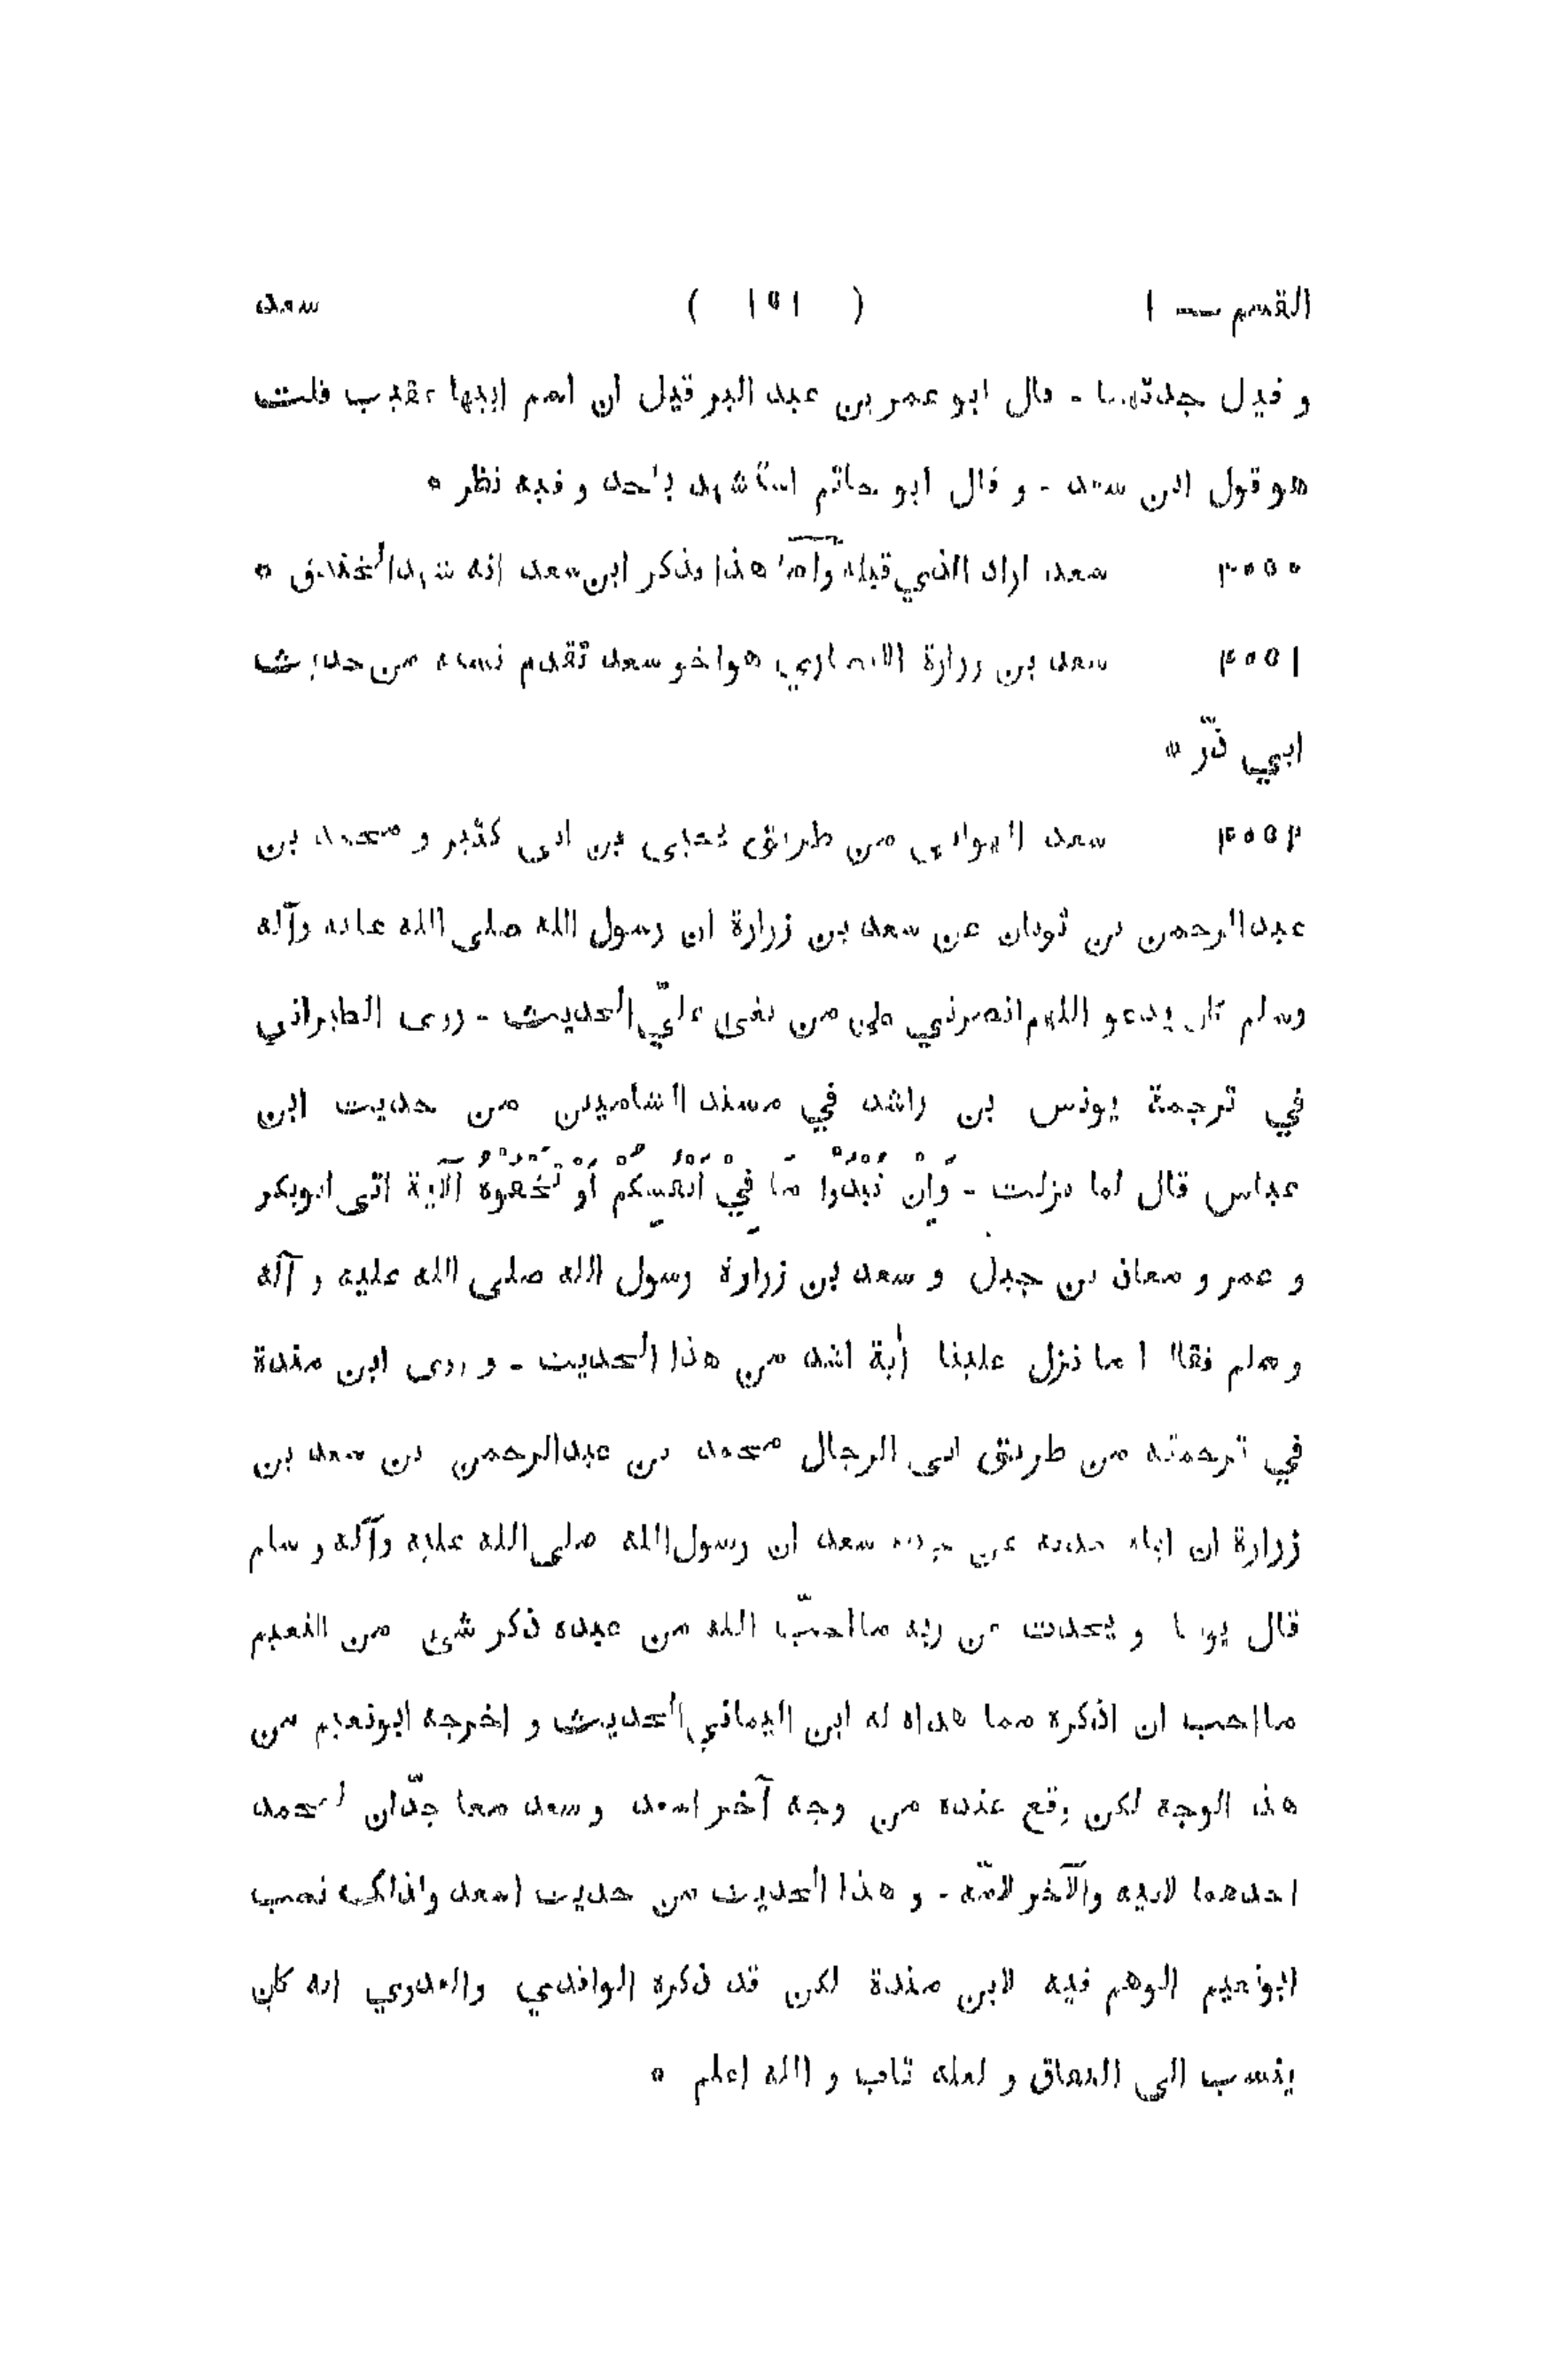 القسم — ١ ( ١٥١ ) سعد
و قيل جدتهما - قال ابو عمر بن عبد البر قيل ان اسم ابيها عقرب قلت
هو قول ابن سعد - و قال ابو حاتم استشهد باحد و فيه نظر *
سعد اراه الذي قبله هذا وذكر ابن سعد انه شهد الخندق *
سعد بن زرارة الانصاري هو اخو سعد تقدم نسبه من حديث
ابي ذرّ *
سعد من طريق يحيى بن ابى كثير و محمد بن
عبد الرحمن بن ثوبان عن سعد بن زرارة ان رسول الله صلى الله عليه وآله
وسلم كان يدعو اللهم انصرني على من بغى عليّ الحديث - روى الطبراني
في ترجمة يونس بن راشد في مسند الشاميين من حديث ابن
عباس قال لما نزلت - وَاِنْ تُبْدُوْا مَا فِيْ اَنْفُسِكُمْ اَوْ تُخْفُوْهُ الآية اتى ابوبكر
و عمر و معاذ بن جبل و سعد بن زرارة رسول الله صلى الله عليه و آله
و سلم فقالوا ما نزل علينا أية اشد من هذا الحديث - و روى ابن مندة
في ترجمته من طريق ابى الرجال محمد بن عبد الرحمن بن سعد بن
زرارة ان اباه حدثه عن جده سعد ان رسول الله صلى الله عليه وآله و سلم
قال يوما و يحدث عن ربه ما احبّ الله من عبده ذكر شئ من النعيم
ما احب ان اذكره مما هداه له ابن اليماني الحديث و اخرجه ابونعيم من
هذا الوجه لكن وقع عنده من وجه آخر اسعد و سعد معا جدّان لمحمد
احدهما لابيه والآخر لامّه - و هذا الحديث من حديث اسعد ولذلك نصب
ابونعيم الوهم فيه لابن مندة لكن قد ذكره الواقدي والعدوي انه كان
ينسب الى النفاق و لعله تاب و الله اعلم *